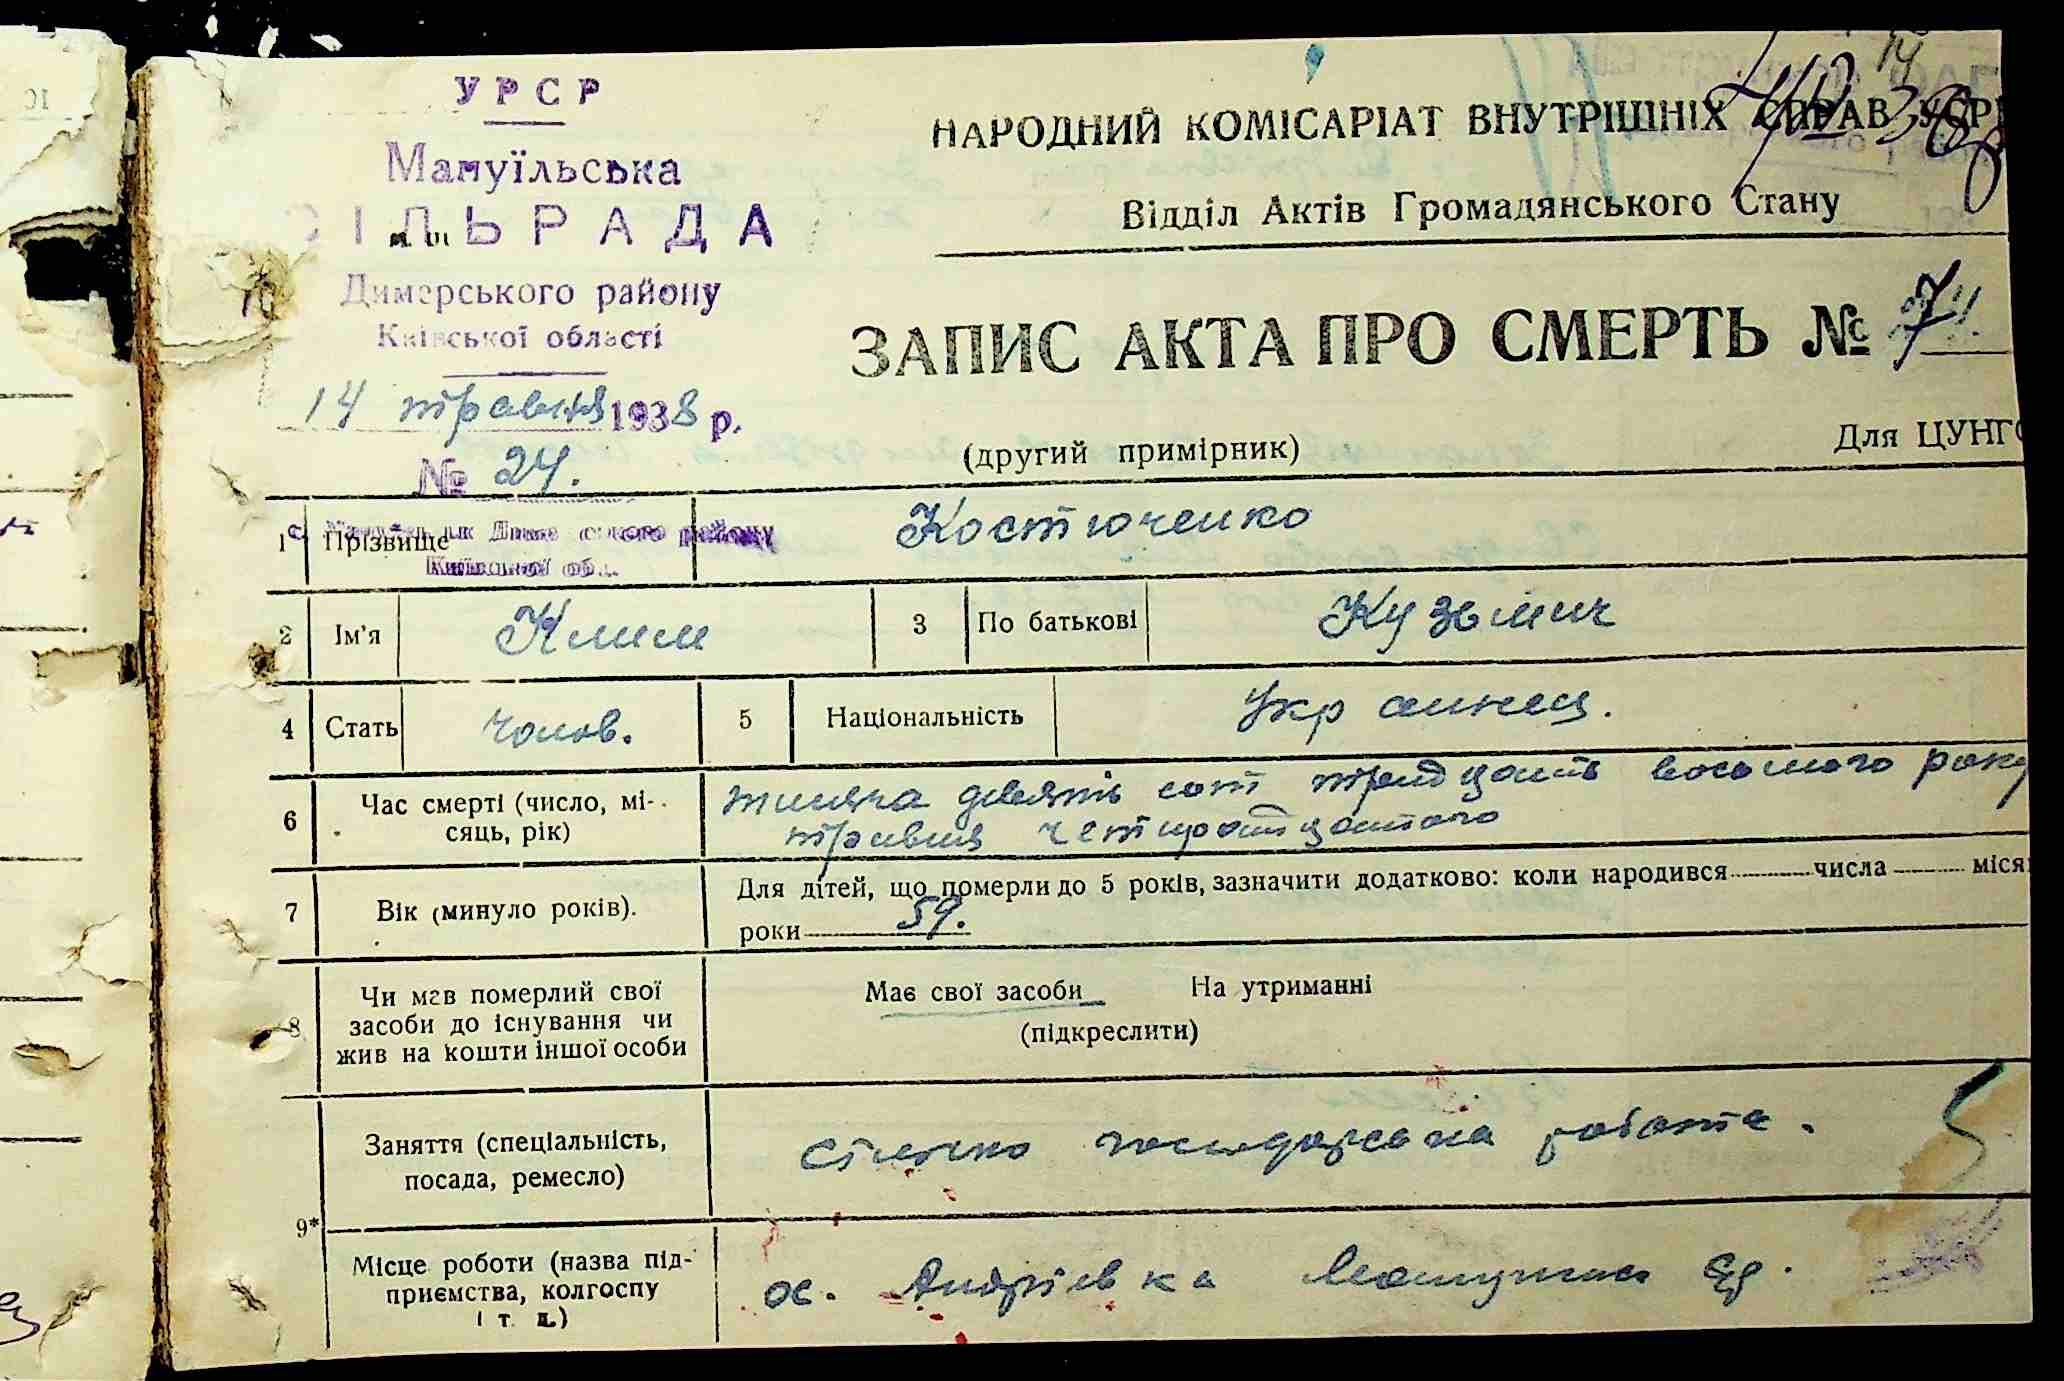 УРСР
Мануїльська
СІЛЬРАДА
Димерського району
Київської області
14 травня 1938 р.
№ 24.
НАРОДНИЙ КОМІСАРІАТ ВНУТРІШНІХ СПРАВ УСРР
Відділ Актів Громадянського Стану
ЗАПИС АКТА ПРО СМЕРТЬ № 74.
(другий примірник)
Для ЦУНГО
1 Прізвище Костюченко
району
Київської обл.
2 Ім'я Клим 3 По батькові Кузьмич
4 Стать чолов. 5 Національність Українец.
6 Час смерті (число, мі-
сяць, рік)
тисяча девять сот тридцять восьмого року
травня
7 Вік (минуло років).
Для дітей, що померли до 5 років, зазначити додатково: коли народився числа міся
роки 59.
8 Чи мав померлий свої
засоби до існування чи
жив на кошти іншої особи
Має свої засоби На утриманні
(підкреслити)
9*
Заняття (спеціальність,
посада, ремесло)
сільско господарська работа.
Місце роботи (назва під-
приємства, колгоспу
і т. д.)
ос. Андріївка